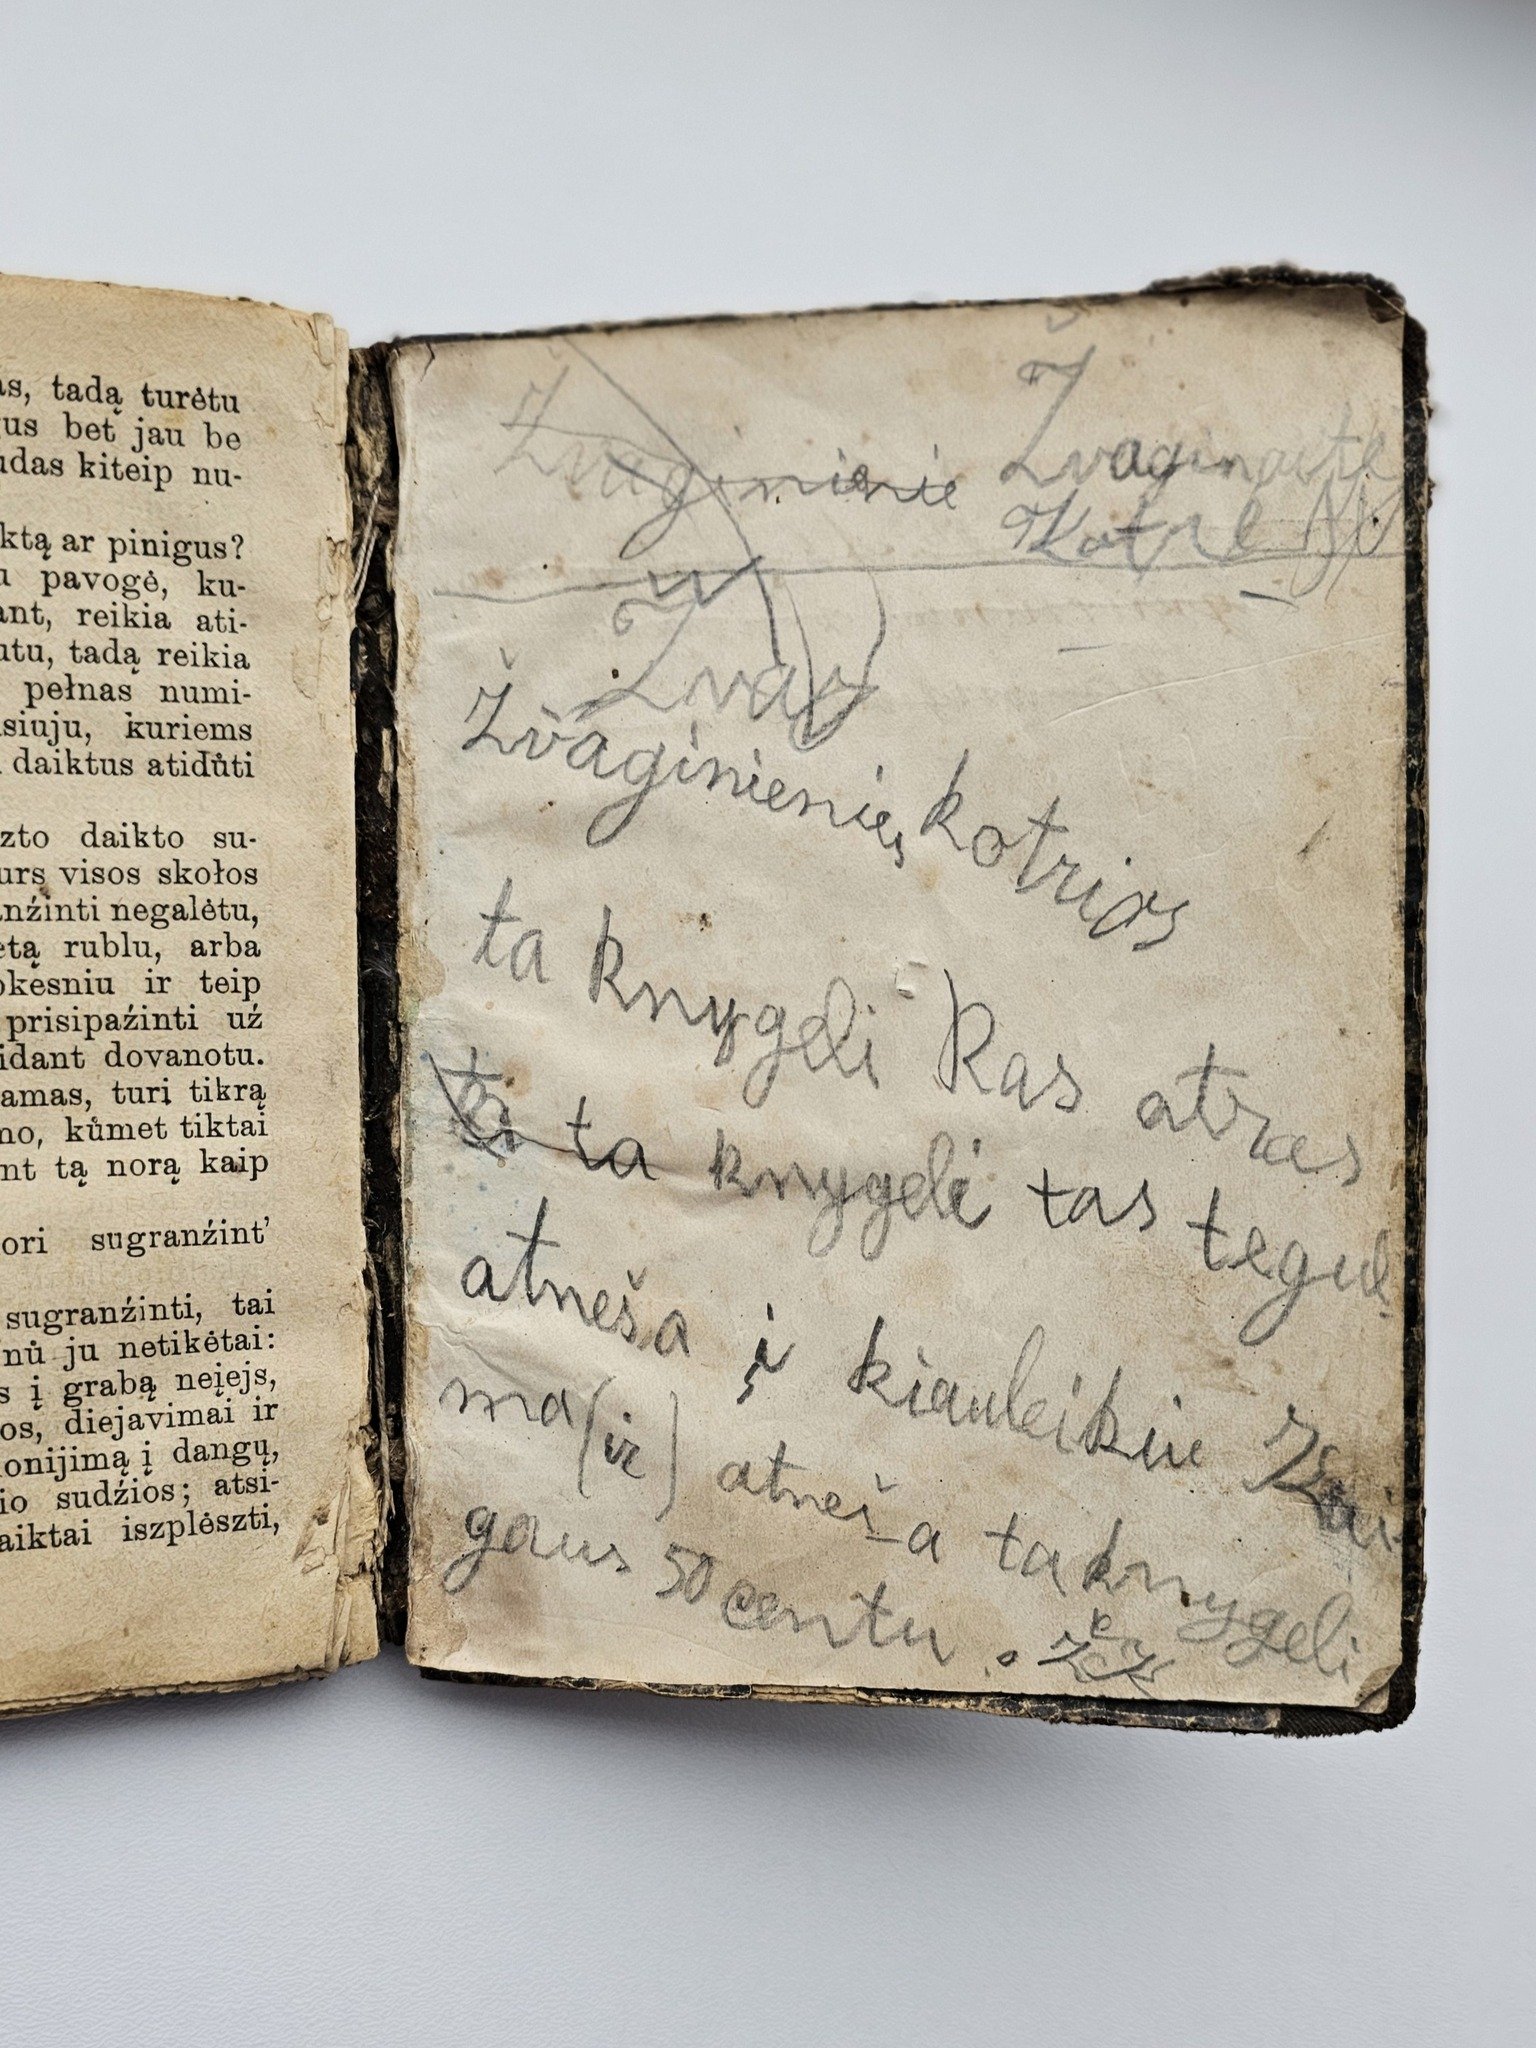 as, tadą turėtu
gus bet jau be
udas kiteip nu-
ktą ar pinigus?
u pavogė, ku-
ant, reikia ati-
utu, tadą reikia
pełnas numi-
siuju, kuriems
daiktus atidůti
zto daikto su-
urs visos skołos
anźinti negalėtu,
etą rublu, arba
okesniu ir teip
prisipaźinti uź
idant dovanotu.
amas, turi tikrą
no, kůmet tiktai
nt tą norą kaip
ori sugranźint'
sugranźinti, tai
nů ju netikėtai:
s į grabą neįejs,
os, diejavimai ir
onijimą į dangų,
io sudźios; atsi-
aiktai iszplėszti,
Žvaginienie Žvaginaitę
Kotrę
Žvag
Žvaginienięs kotrios
ta knygeli Kas atras
ta knygeli tas tegul
atneša į kiauleikiu
ma (ir) atneša ta knygeli
gaus 50 centu.